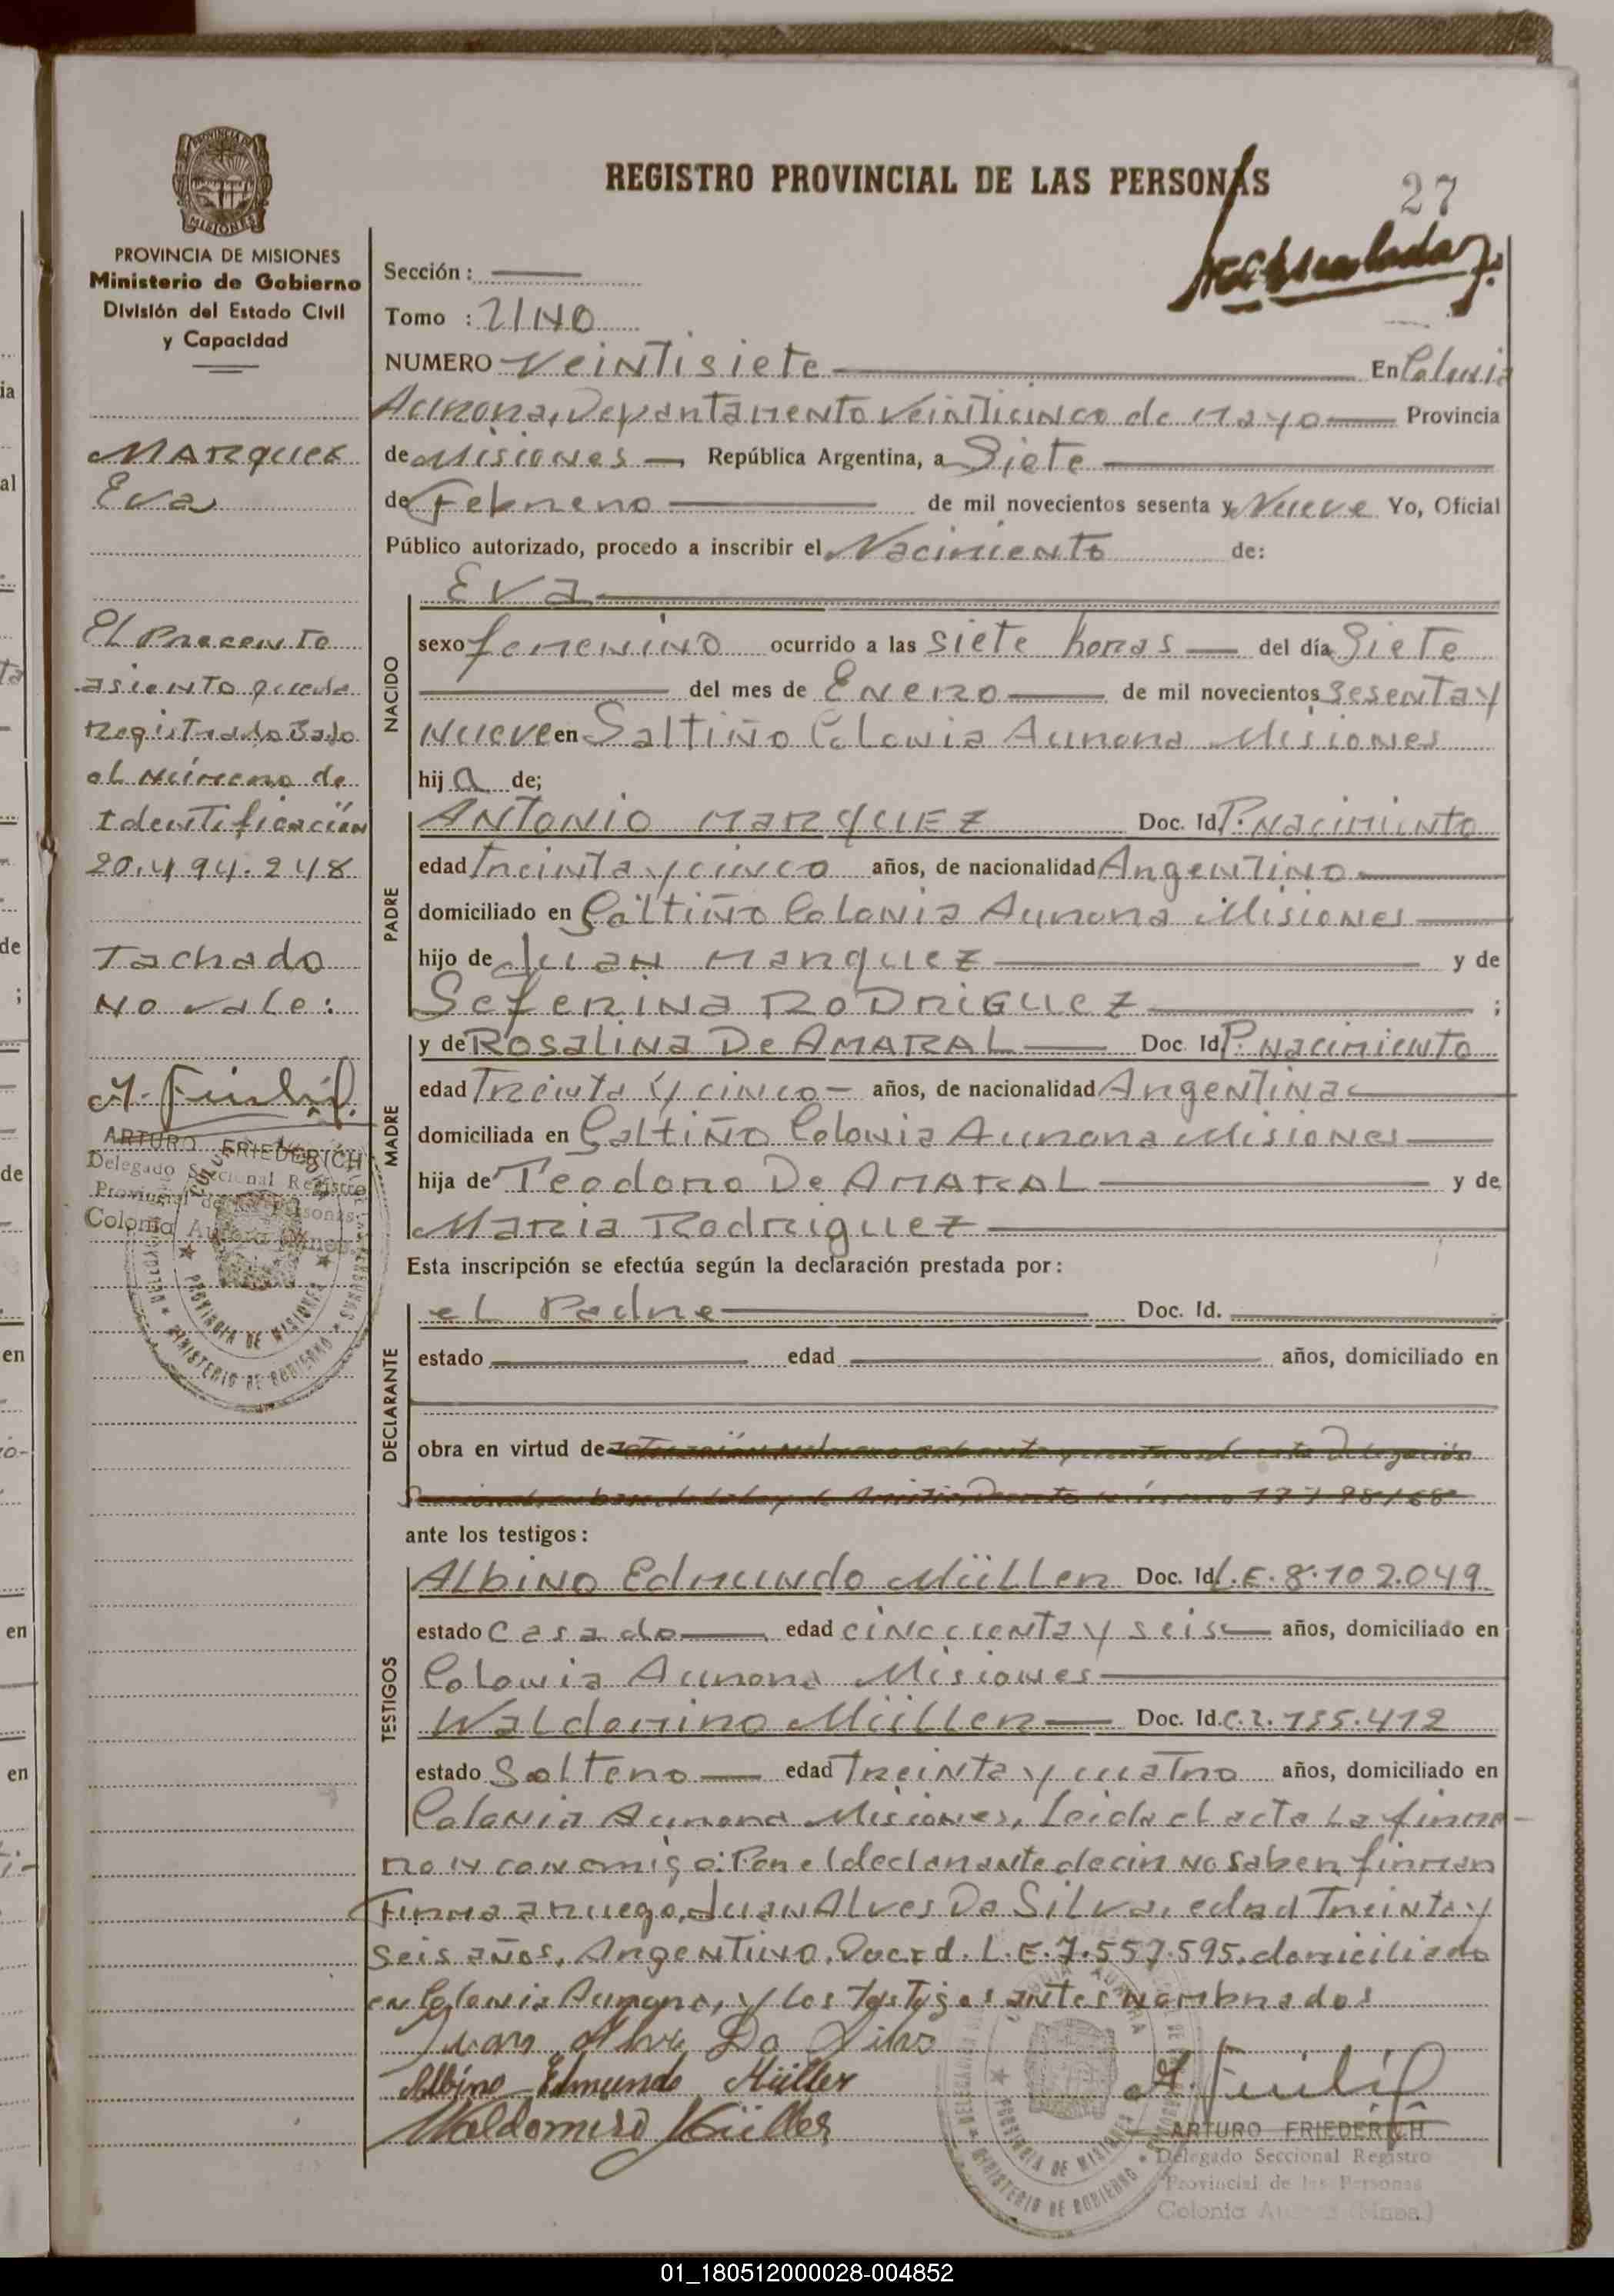 REGISTRO PROVINCIAL DE LAS PERSONAS
27
PROVINCIA DE MISIONES
Ministerio de Gobierno
División del Estado Civil
y Capacidad
MARQUEZ
Eva
El Precente
asiento queda
Registrado Bajo
el número de
Identificación
20.494.248
Tachado
No vale:
ARTURO FRIEDERICH
Delegado Seccional Registro
Provincial de las Personas
Colonia Aurora
Sección :
Tomo :
NUMERO Veintisiete En Colonia
Aurora, Departamento Veinticinco de Mayo Provincia
de Misiones República Argentina, a Siete
de Febrero de mil novecientos sesenta y Nueve Yo, Oficial
Público autorizado, procedo a inscribir el Nacimiento de:
NACIDO
Eva
sexo femenino ocurrido a las siete horas del día Siete
del mes de Enero de mil novecientos sesenta y
Nueve en Saltiño Colonia Aurora Misiones
hij a de;
PADRE
Antonio Marquez Doc. Id P. Nacimiento
edad Treinta y cinco años, de nacionalidad Argentino
domiciliado en Saltiño Colonia Aurora Misiones
hijo de Juan Marquez y de
Seferina Rodriguez ;
MADRE
y de Rosalina De AMARAL Doc. Id P. Nacimiento
edad Treinta y cinco años, de nacionalidad Argentina
domiciliada en Saltiño Colonia Aurora Misiones
hija de Teodoro De AMARAL y de
Maria Rodriguez
Esta inscripción se efectúa según la declaración prestada por :
DECLARANTE
el Padre Doc. Id.
estado edad años, domiciliado en
obra en virtud de
ante los testigos :
TESTIGOS
Albino Edmundo Müller Doc. Id L.E. 8.102.049
estado Casado edad cincuenta y seis años, domiciliado en
Colonia Aurora Misiones
Waldomiro Müller Doc. Id. C.I. 135.412
estado Soltero edad Treinta y cuatro años, domiciliado en
Colonia Aurora Misiones, Leida el acta La firma-
ron conmigo: Por el declarante decir no saben firmar
Firma a ruego, Juan Alves Da Silva, edad Treinta y
seis años, Argentino, Doc. Id. L.E. 7.557.595. domiciliado
en Colonia Aurora, y los Testigos antes nombrados
Juan Alve Da Silva
Albino Edmundo Müller
Waldomiro Müller
ARTURO FRIEDERICH
Delegado Seccional Registro
Provincial de las Personas
Colonia Aurora (Mnes.)
01_180512000028-004852